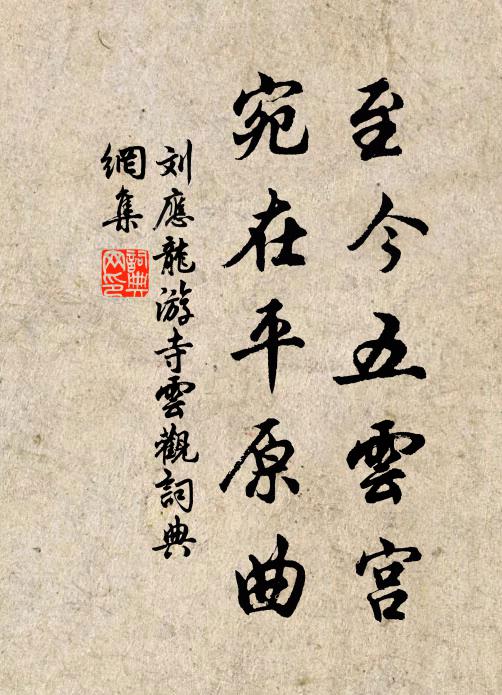 至今五雲宫
宛在平原曲
刘應龍游寺雲觀詞典
網集
詞典網印